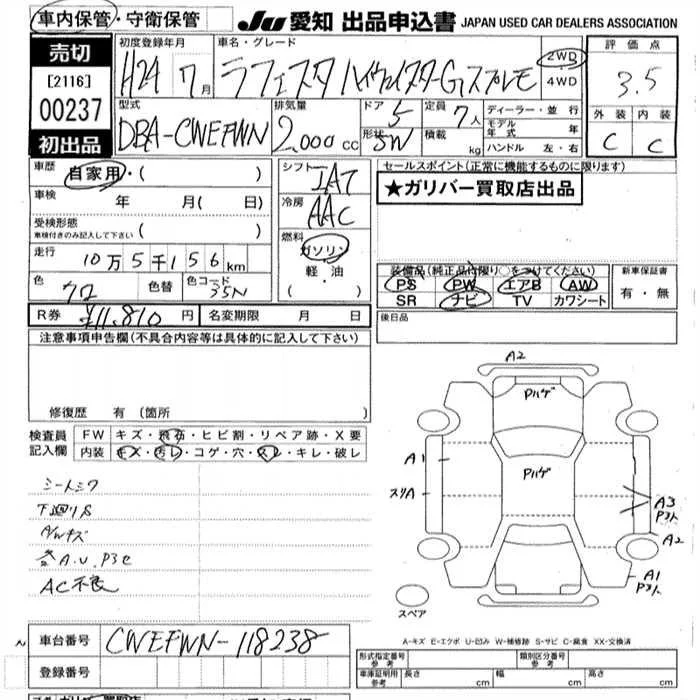 車内保管・守衛保管
JU 愛知 出品申込書 JAPAN USED CAR DEALERS ASSOCIATION
売切
[2116]
00237
初出品
初度登録年月
H24 7月
車名・グレード
ラフェスタ ハイウェイスターGスプレモ
2WD
4WD
評価点
3.5
外装 内装
C C
型式
DBA-CWEFWN
排気量
2,000cc
ドア 5
形状 SW
定員 7人
積載 kg
ディーラー・並行
モデル年式 年
ハンドル 左・右
車歴 自家用・( )
車検 年 月( 日)
受検形態
車検付きのみ記入して下さい ( )
走行 10万5千156km
色 クロ 色替 色コード 35N
R券 ¥11,810円 名変期限 月 日
シフト IAT
冷房 AAC
燃料
ガソリン
軽・油
( ・ )
セールスポイント(正常に機能するものに限ります)
★ガリバー買取店出品
装備品(純正品は限り○をつけてください)
PS PW エアB AW
SR ナビ TV カワシート
新車保証書
有・無
後日品
注意事項申告欄(不具合内容等は具体的に記入して下さい)
修復歴 有(箇所
検査員記入欄
FW キズ・飛石・ヒビ割・リペア跡・X要
内装 キズ・汚レ・コゲ・穴・スレ・キレ・破レ
シートシワ
下廻りS
A/Wキズ
AC不良
A2
Pハゲ
Pハゲ
A1
スリA
A3
A2
A1
スペア
A-キズ E-エクボ U-凹み W-補修跡 S-サビ C-腐食 XX-交換済
車台番号 CWEFWN-118238
登録番号
形式指定番号 参考
類別区分番号 参考
車庫証明用 参考 長さ cm 幅 cm 高さ cm